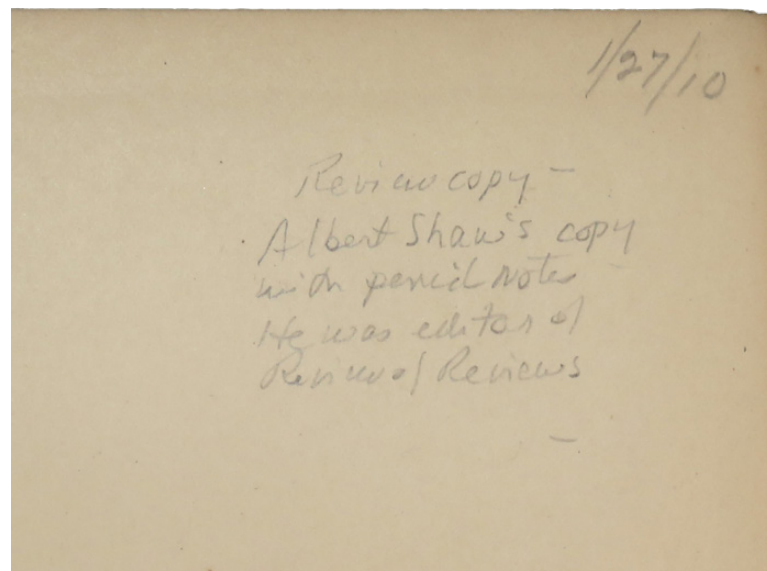 1/27/10
Review copy -
Albert Shaw's copy
with pencil notes
He was editor of
Review of Reviews